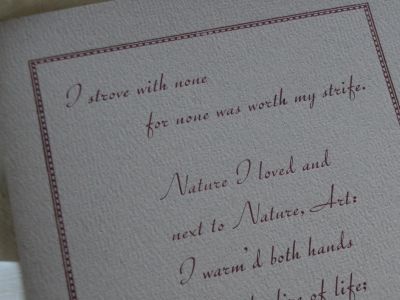 I strove with none
for none was worth my strife.
Nature I loved and
next to Nature, Art:
I warm'd both hands
of life: